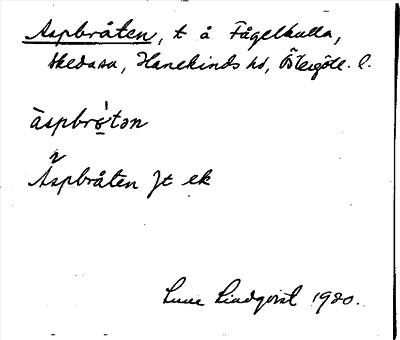 Aspbråten, t å Fågelkulla,
Skedasa, Hanekinds hd, Östergötl. l.
àspbrɷ̀tən
Aspbråten Jt ek
Lindqvist 1920.